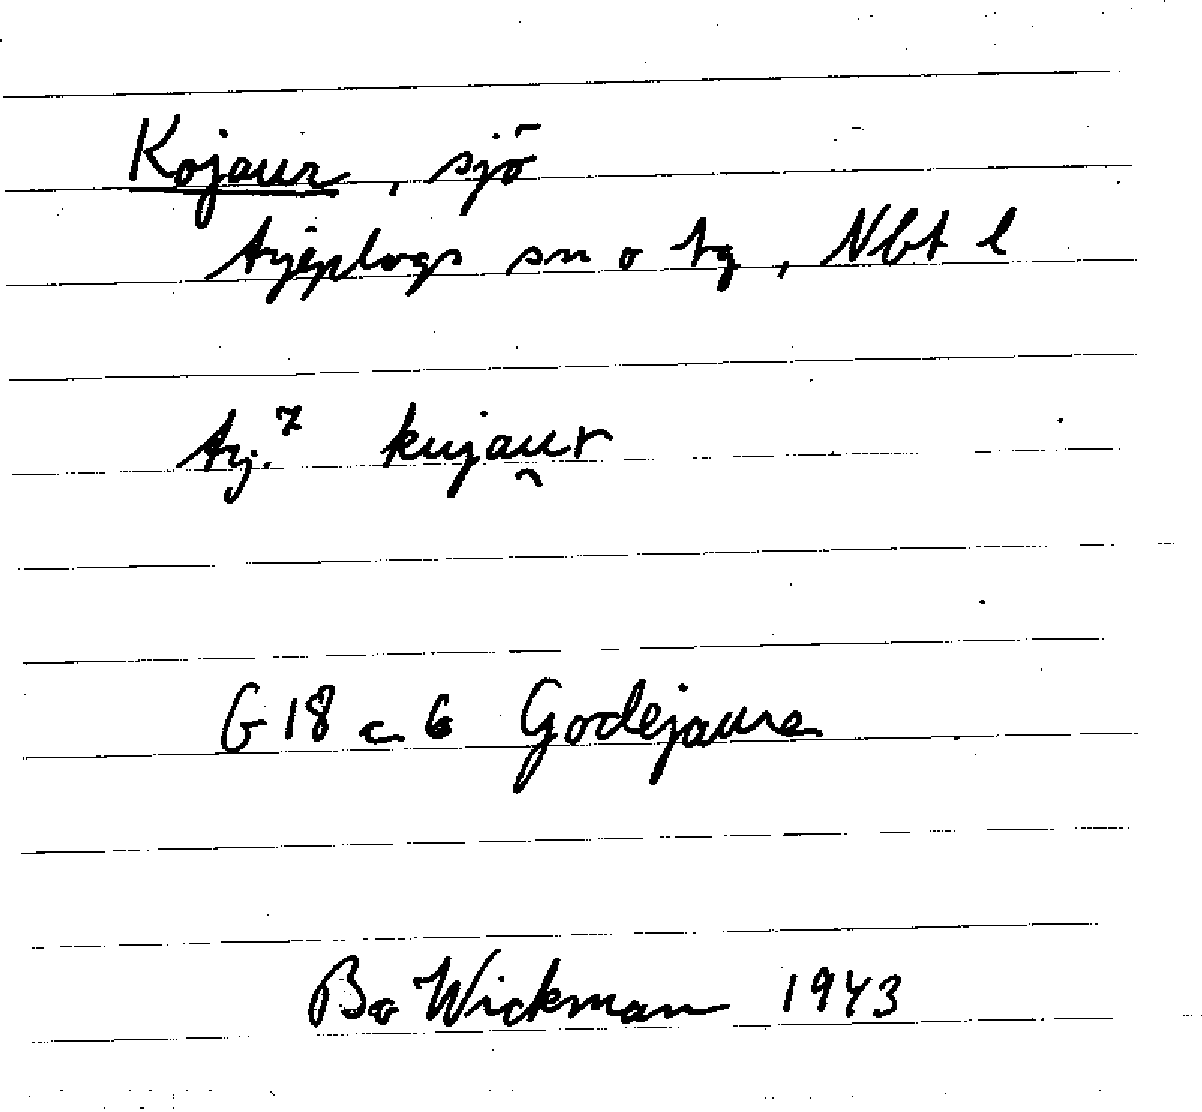 Kojaur, sjö
Arjeplogs sn o tg, Nbt l
Arj.⁷ kujau̯r
G 18 c 6 Godejaure
Bo Wickman 1943